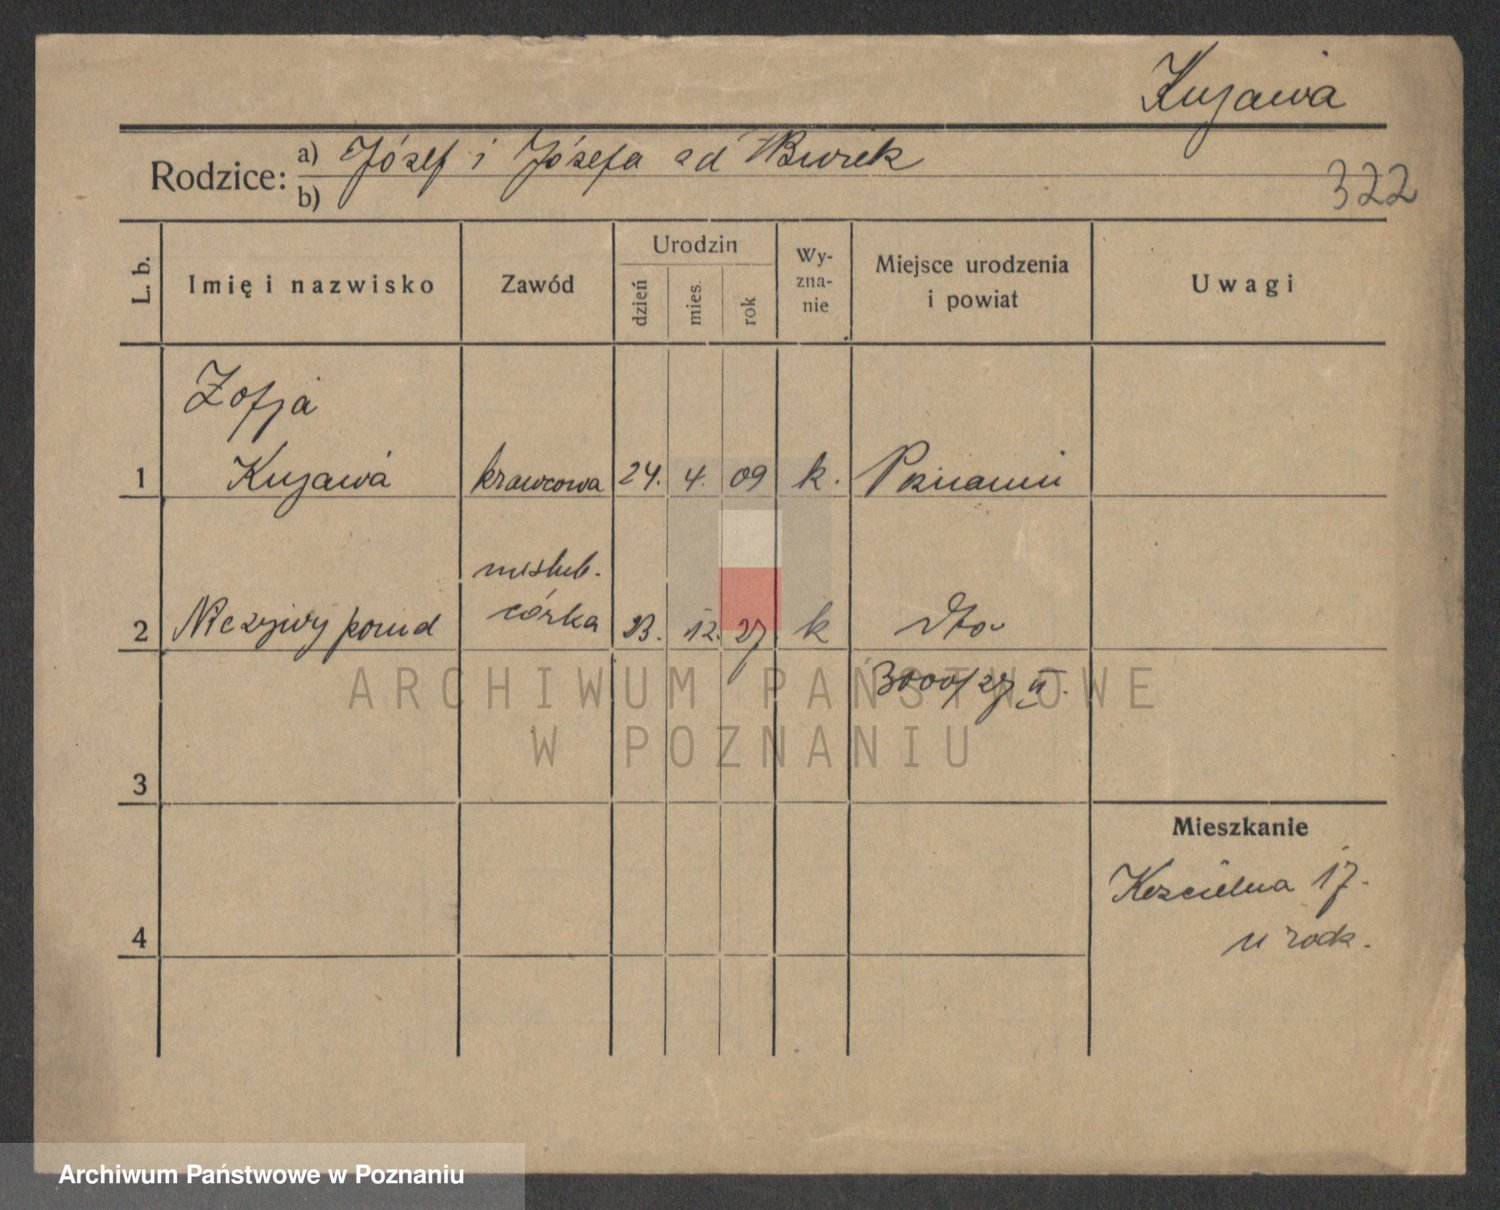 Kujawa
Rodzice: a) Józef i Józefa zd
b)
322
L. b. Imię i nazwisko Zawód Urodzin dzień mies. rok Wy-zna-nie Miejsce urodzenia i powiat Uwagi
Zofja
1 Kujawa krawcowa 24. 4. 09 k. Poznaniu
nieślub.
2 Nieżywy poród córka 23. 12. 27 k dto
3000/27 II.
ARCHIWUM PAŃSTWOWE
W POZNANIU
3
Mieszkanie
17.
4
u rodz.
Archiwum Państwowe w Poznaniu